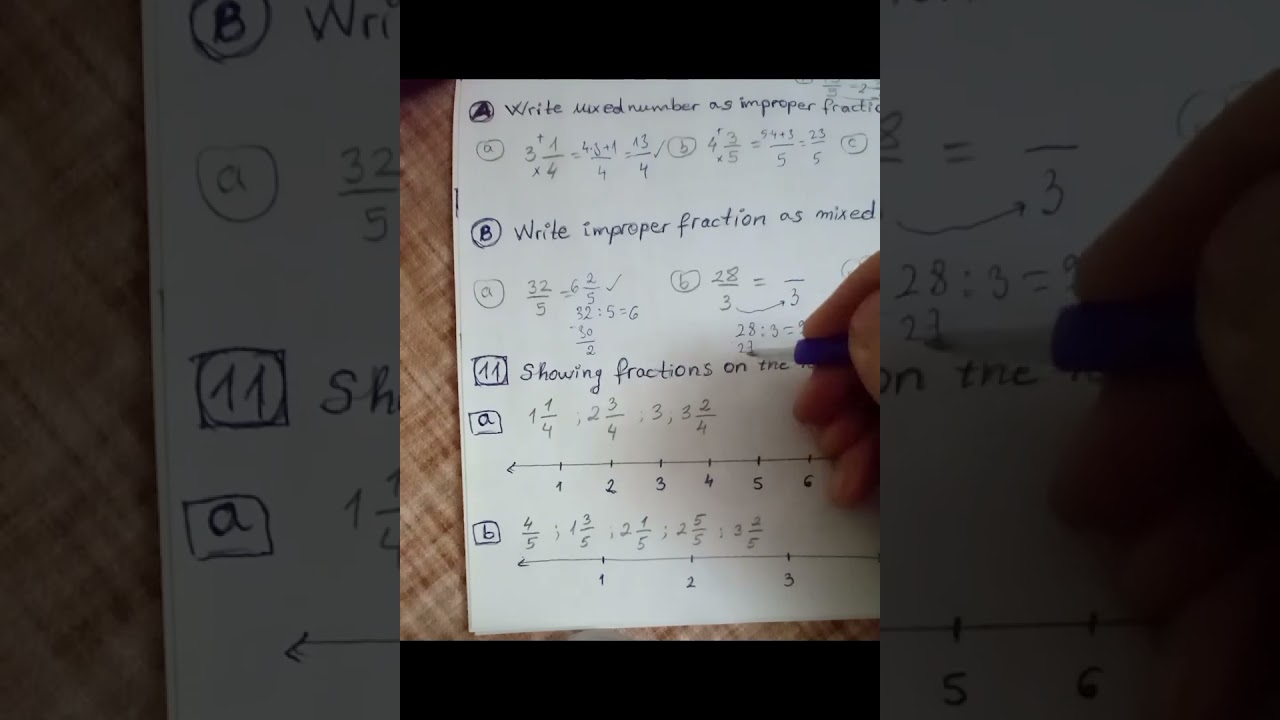 A Write mixed number as improper fractio
a 3 1/4 = 4·3+1/4 = 13/4 ✓ b 4 3/5 = 5·4+3/5 = 23/5 c
B Write improper fraction as mixed
a 32/5 = 6 2/5 ✓ b 28/3 = /3
32:5=6 28:3=9
-30 27
2
11 Showing fractions on the
a 1 1/4 ; 2 3/4 ; 3, 3 2/4
1 2 3 4 5 6
b 4/5 ; 1 3/5 ; 2 1/5 ; 2 5/5 ; 3 2/5
1 2 3